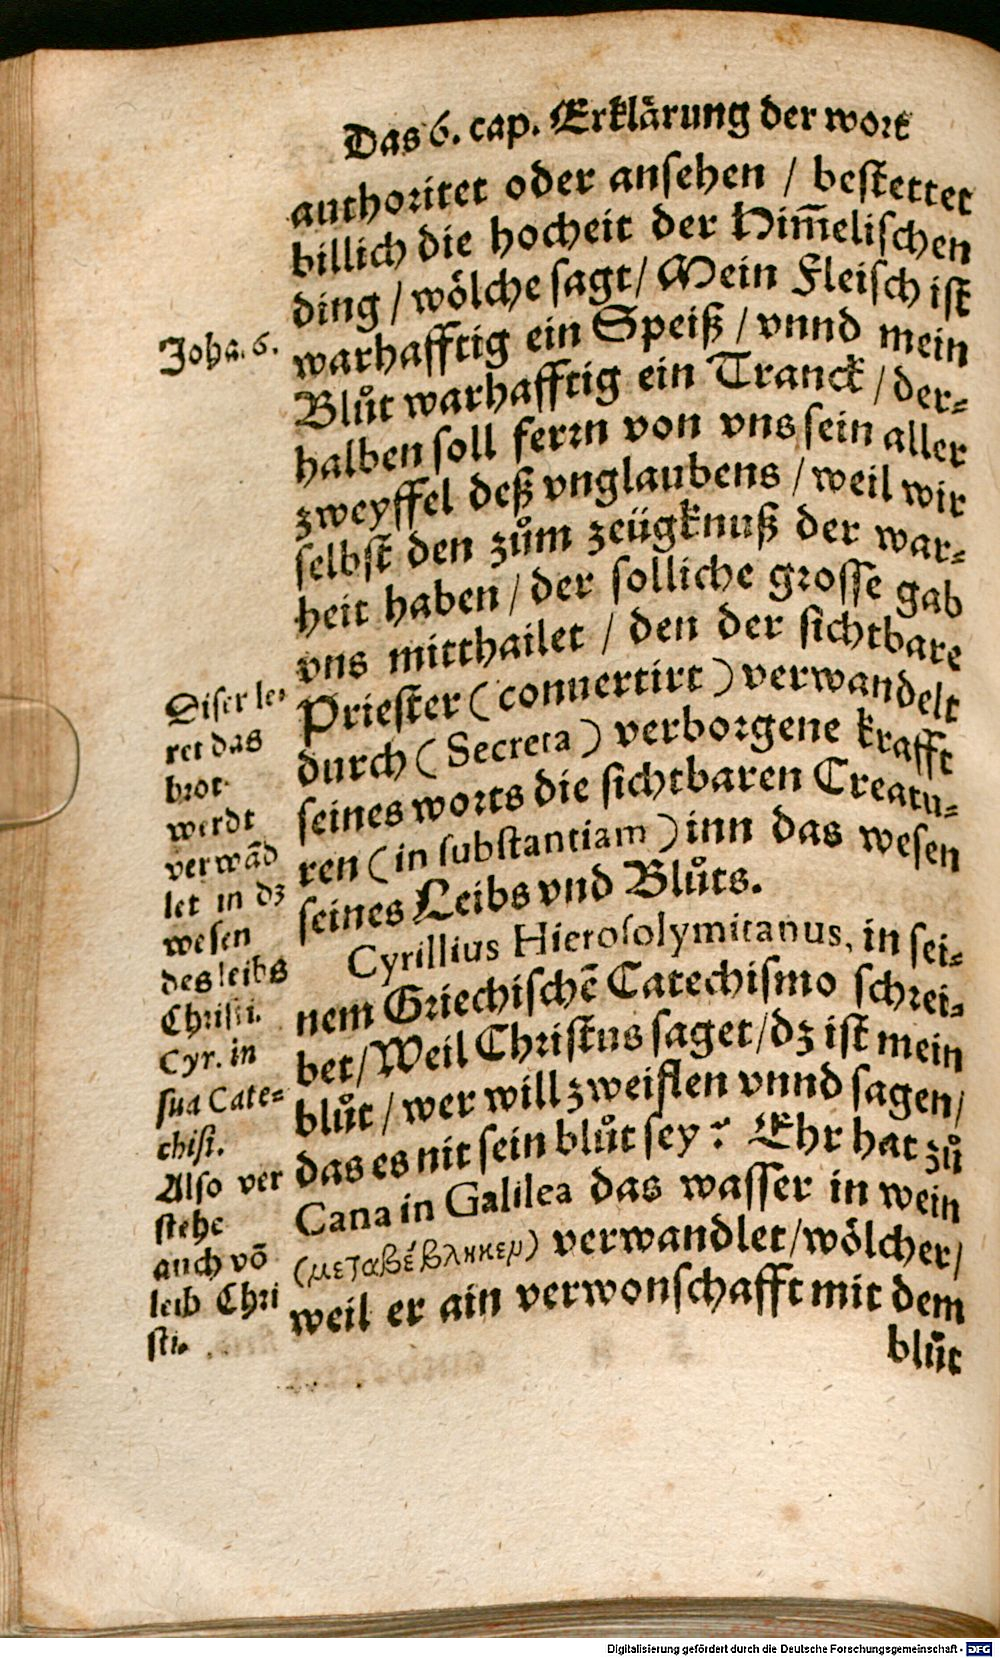 Das 6. cap. Erklärung der wort
authoritet oder ansehen / bestettet
billich die hocheit der Him̃elischen
ding / wölche sagt / Mein Fleisch ist
warhafftig ein Speiß / vnnd mein
Blůt warhafftig ein Tranck / der⸗
halben soll ferrn von vns sein aller
zweyffel deß vnglaubens / weil wir
selbst den zům zeügknuß der war⸗
heit haben / der solliche grosse gab
vns mitthailet / den der sichtbare
Priester ( conuertirt ) verwandelt
durch ( Secreta ) verborgene krafft
seines worts die sichtbaren Creatu⸗
ren ( in substantiam ) inn das wesen
seines Leibs vnd Blůts.
Cyrillius Hierosolymitanus, in sei⸗
nem Griechischẽ Catechismo schrei⸗
bet / Weil Christus saget / dz ist mein
blůt / wer will zweiflen vnnd sagen /
das es nit sein blůt sey ? Ehr hat zů
Cana in Galilea das wasser in wein
(μεταβέβληκεν) verwandlet / wölcher /
weil er ain verwonschafft mit dem
blůt
Joha. 6.
Diser le⸗
ret das
brot
werdt
verwãd
let in dz
wesen
des leibs
Christi.
Cyr. in
sua Cate⸗
chis.
Also ver
stehe
auch võ
leib Chri
sti.
Digitalisierung gefördert durch die Deutsche Forschungsgemeinschaft - DFG